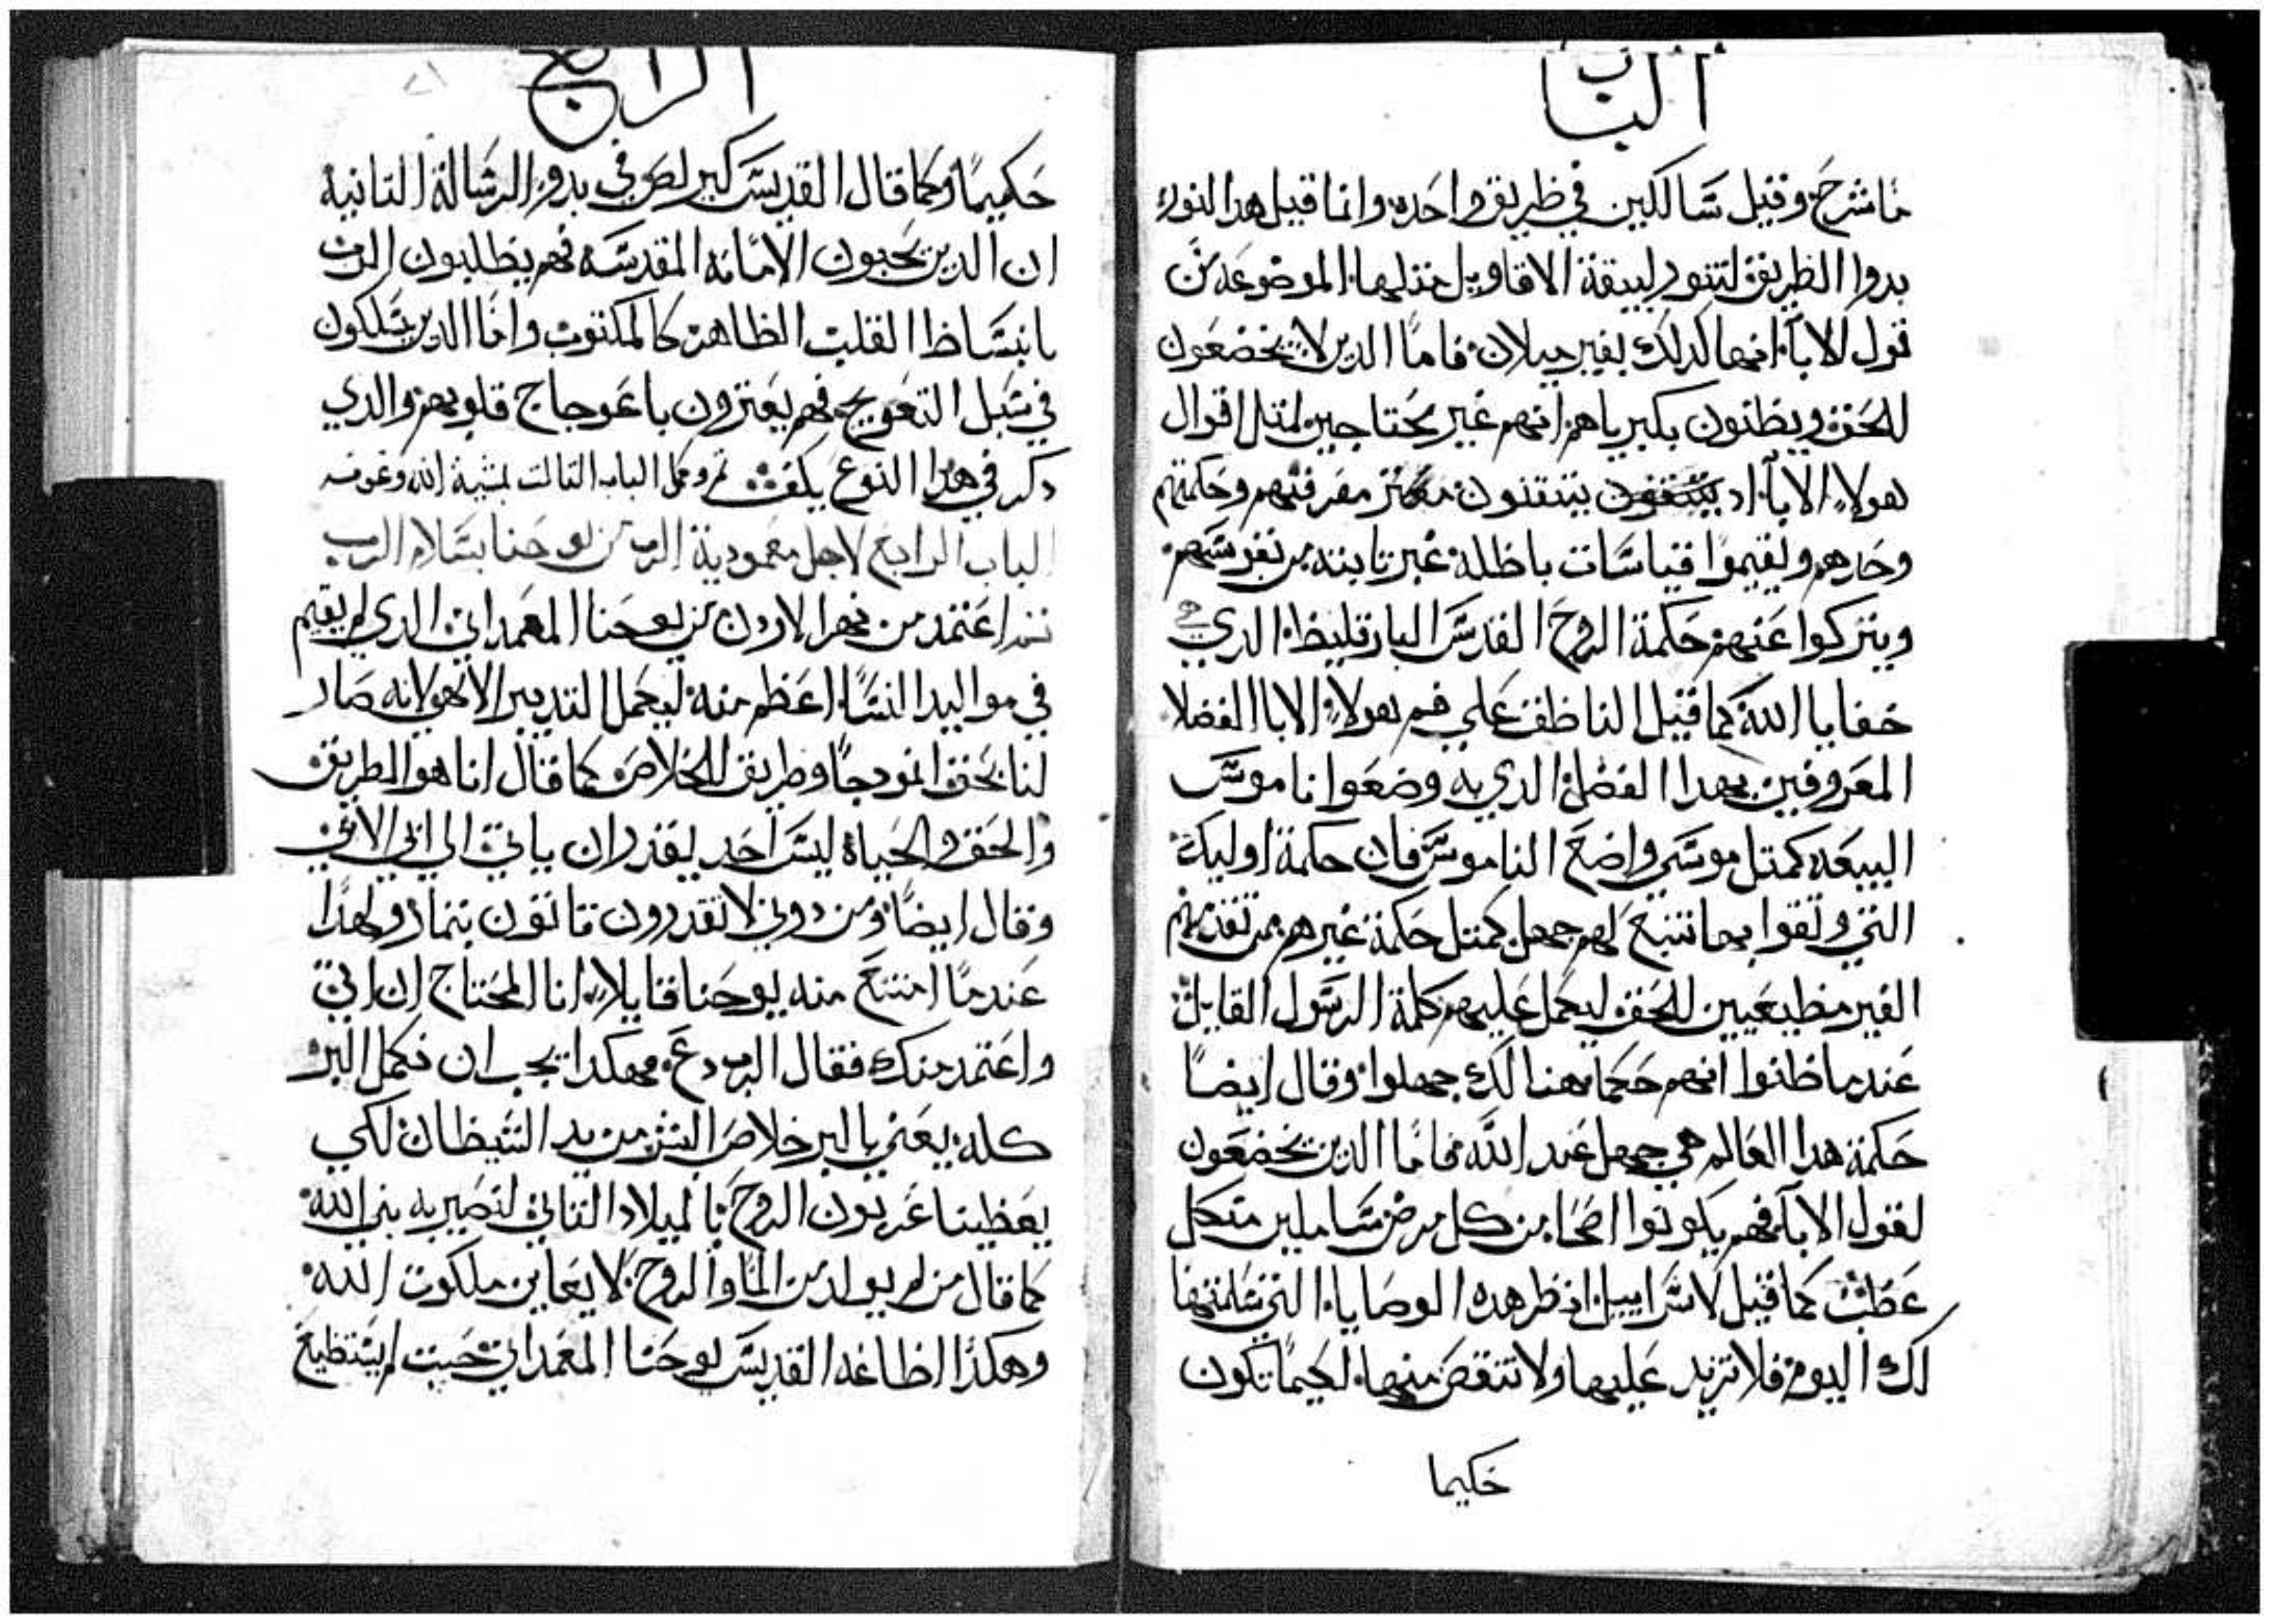 الباب
ما شرح وقيل سالكين في طريق واحده وانما قيل هدا النور
بدوا الطريق لتنور لبيقة الاقاويل متلها الموضوعه من
قول الابآ انها كدلك بغير ميلان فاما الدين لا يخضعون
للحق ويظنون بكبرياهم انهم غير محتاجين لمتل اقوال
هولاء الابآ اد يتيقنون معرفتهم وحكمتهم
وحدهم ويقيموا قياسات باطله غير تابته من نفوسهم
ويتركوا عنهم حكمة الروح القدس البارقليط الدي
خفايا الله كما قيل الناطق علي فم هولاء الابا الفضلا
المعروفين بهدا الفضل الدي به وضعوا ناموس
البيعه كمتل موسي واضع الناموس فان حكمة اوليك
التي وتقوا بها تتبع لهم جهل كمتل حكمة غيرهم ممن تقدمهم
الغير مطيعيين للحق ليكمل عليهم كلمة الرسول القايل
عندما ظنوا انهم حكما هنالك جهلوا وقال ايضا
حكمة هدا العالم هي جهل عند الله فاما الدين يخضعون
لقول الابآ فهم يكونوا اصحا من كل مرض سالمين من كل
عطب كما قيل لاسراييل انظر هده الوصايا التي سلمتها
لك اليوم فلا تزيد عليها ولا تنقص منها لكيما تكون
حكيما
الرابع
حكيمًا وكما قال القديس كيرلص في بدو الرسالة التانية
ان الدين يحبون الامانه المقدسه فهم يطلبون الرب
بانبساط القلب الظاهر كالمكتوب واما الدين يسلكون
في سبل التعويج فهم يعترون باعوجاج قلوبهم والدي
دكر في هدا النوع يكفي تم وكمل الباب التالت بمشية الله وعونه
الباب الرابع لاجل معمودية الرب من يوحنا بسلام الرب
اعتمد من نهر الاردن من يوحنا المعمداني الدي لم يقيم
في مواليد النسا اعظم منه ليكمل التدبير الالهي لانه صار
لنا بحق انمودجًا وطريق للخلاص كما قال انا هو الطريق
والحق والحياة ليس احد يقدر ان ياتي الي ابي الا بي
وقال ايضًا ومن دوني لا تقدرون تاتون بتمار ولهدا
عندما امتنع منه يوحنا قايلا انا المحتاج ان اتي
واعتمد منك فقال الرب دع فهكدا يجب ان نكمل البر
كله يعني بالبر خلاص البشر من يد الشيطان لكي
يعطينا عربون الروح بالميلاد التاني لنصير به بني الله
كما قال من لم يولد من الما والروح لا يعاين ملكوت الله
وهكدا اطاعه القديس يوحنا المعمداني حيت لم يستطيع